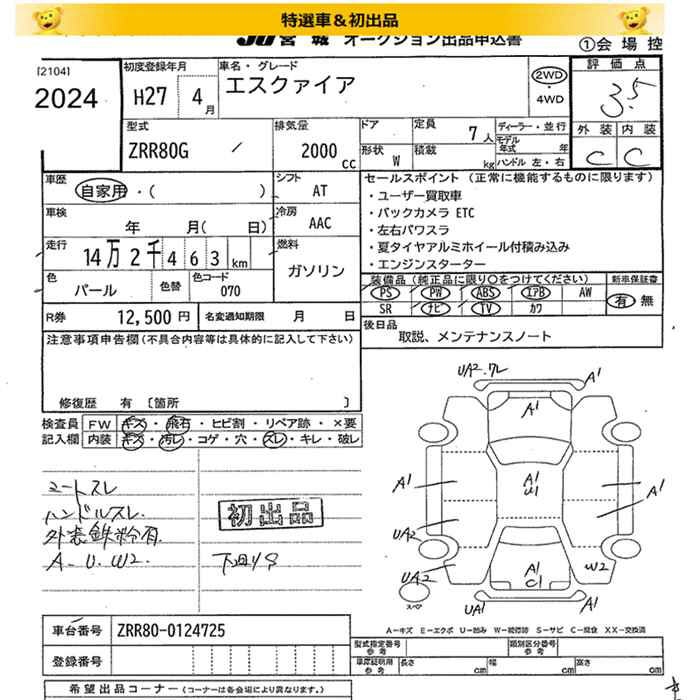 特選車＆初出品
JU宮城 オークション出品申込書
①会場控
[2104]
2024
初度登録年月
H27 4月
車名・グレード
エスクァイア
2WD・4WD
評価点
3.5
外装 内装
C C
型式
ZRR80G
排気量
2000cc
ドア
形状 W
定員 7人
積載 kg
ディーラー・並行
モデル年式 年
ハンドル 左・右
車歴
自家用・( )
シフト
AT
車検
年 月( 日)
冷房
AAC
走行
14万2千463km
燃料
ガソリン
色
パール
色替
色コード
070
R券 12,500円
名変通知期限 月 日
セールスポイント（正常に機能するものに限ります）
・ユーザー買取車
・バックカメラ ETC
・左右パワスラ
・夏タイヤアルミホイール付積み込み
・エンジンスターター
装備品（純正品に限り○をつけてください）
PS PW ABS エアB AW
SR ナビ TV カワ
新車保証書
有 無
後日品
取説、メンテナンスノート
注意事項申告欄(不具合内容等は具体的に記入して下さい)
修復歴 有〔箇所 〕
検査員記入欄
FW キズ・飛石・ヒビ割・リペア跡・×要
内装 キズ・汚レ・コゲ・穴・スレ・キレ・破レ
シートスレ
ハンドルスレ.
外装鉄粉有.
A. U. W2.
初出品
下回りS
UA2.ワレ
A1
A1
A1
A1
U1
A1
UA2
UA2
W2
A1
C1
UA1
A1
スペア
A－キズ E－エクボ U－凹み W－補修跡 S－サビ C－腐食 XX－交換済
車台番号 ZRR80-0124725
登録番号
型式指定番号 参考
類別区分番号 参考
車庫証明用 参考
長さ cm
幅 cm
高さ cm
希望出品コーナー（コーナーは各会場により異なります。）